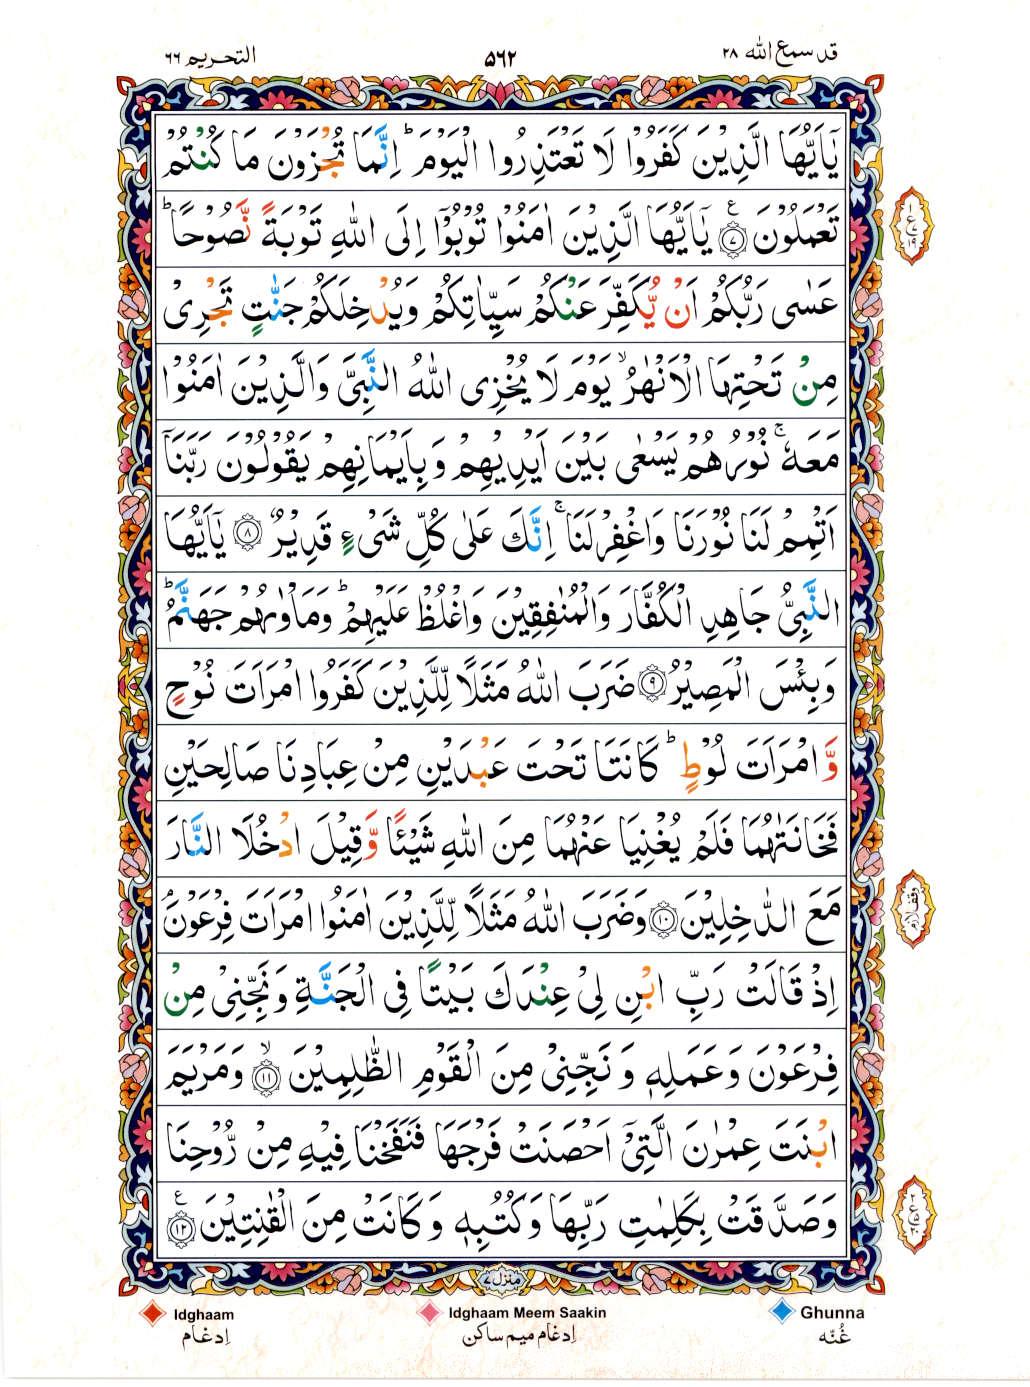 قد سمع الله ٢٨
٥٦٢
التحريم ٦٦
يٰٓاَيُّهَا الَّذِيْنَ كَفَرُوْا لَا تَعْتَذِرُوا الْيَوْمَ ؕ اِنَّمَا تُجْزَوْنَ مَا كُنْتُمْ
تَعْمَلُوْنَ ﴿٧﴾ يٰٓاَيُّهَا الَّذِيْنَ اٰمَنُوْا تُوْبُوْٓا اِلَى اللّٰهِ تَوْبَةً نَّصُوْحًا ؕ
عَسٰى رَبُّكُمْ اَنْ يُّكَفِّرَ عَنْكُمْ سَيِّاٰتِكُمْ وَيُدْخِلَكُمْ جَنّٰتٍ تَجْرِىْ
مِنْ تَحْتِهَا الْاَنْهٰرُ ۙ يَوْمَ لَا يُخْزِى اللّٰهُ النَّبِىَّ وَالَّذِيْنَ اٰمَنُوْا
مَعَهٗ ۚ نُوْرُهُمْ يَسْعٰى بَيْنَ اَيْدِيْهِمْ وَبِاَيْمَانِهِمْ يَقُوْلُوْنَ رَبَّنَاۤ
اَتْمِمْ لَنَا نُوْرَنَا وَاغْفِرْ لَنَا ۚ اِنَّكَ عَلٰى كُلِّ شَىْءٍ قَدِيْرٌ ﴿٨﴾ يٰٓاَيُّهَا
النَّبِىُّ جَاهِدِ الْكُفَّارَ وَالْمُنٰفِقِيْنَ وَاغْلُظْ عَلَيْهِمْ ؕ وَمَاْوٰىهُمْ جَهَنَّمُ ؕ
وَبِئْسَ الْمَصِيْرُ ﴿٩﴾ ضَرَبَ اللّٰهُ مَثَلًا لِّلَّذِيْنَ كَفَرُوا امْرَاَتَ نُوْحٍ
وَّ امْرَاَتَ لُوْطٍ ؕ كَانَتَا تَحْتَ عَبْدَيْنِ مِنْ عِبَادِنَا صَالِحَيْنِ
فَخَانَتٰهُمَا فَلَمْ يُغْنِيَا عَنْهُمَا مِنَ اللّٰهِ شَيْـًٔا وَّقِيْلَ ادْخُلَا النَّارَ
مَعَ الدّٰخِلِيْنَ ﴿١٠﴾ وَضَرَبَ اللّٰهُ مَثَلًا لِّلَّذِيْنَ اٰمَنُوا امْرَاَتَ فِرْعَوْنَ ۘ
اِذْ قَالَتْ رَبِّ ابْنِ لِىْ عِنْدَكَ بَيْتًا فِى الْجَنَّةِ وَنَجِّنِىْ مِنْ
فِرْعَوْنَ وَعَمَلِهٖ وَنَجِّنِىْ مِنَ الْقَوْمِ الظّٰلِمِيْنَ ۙ ﴿١١﴾ وَمَرْيَمَ
ابْنَتَ عِمْرٰنَ الَّتِىْٓ اَحْصَنَتْ فَرْجَهَا فَنَفَخْنَا فِيْهِ مِنْ رُّوْحِنَا
وَصَدَّقَتْ بِكَلِمٰتِ رَبِّهَا وَكُتُبِهٖ وَكَانَتْ مِنَ الْقٰنِتِيْنَ ﴿١٢﴾
وقف لازم
منزل ٧
Idghaam Idghaam Meem Saakin Ghunna
اِدغام اِدغام میم ساکن غُنّه